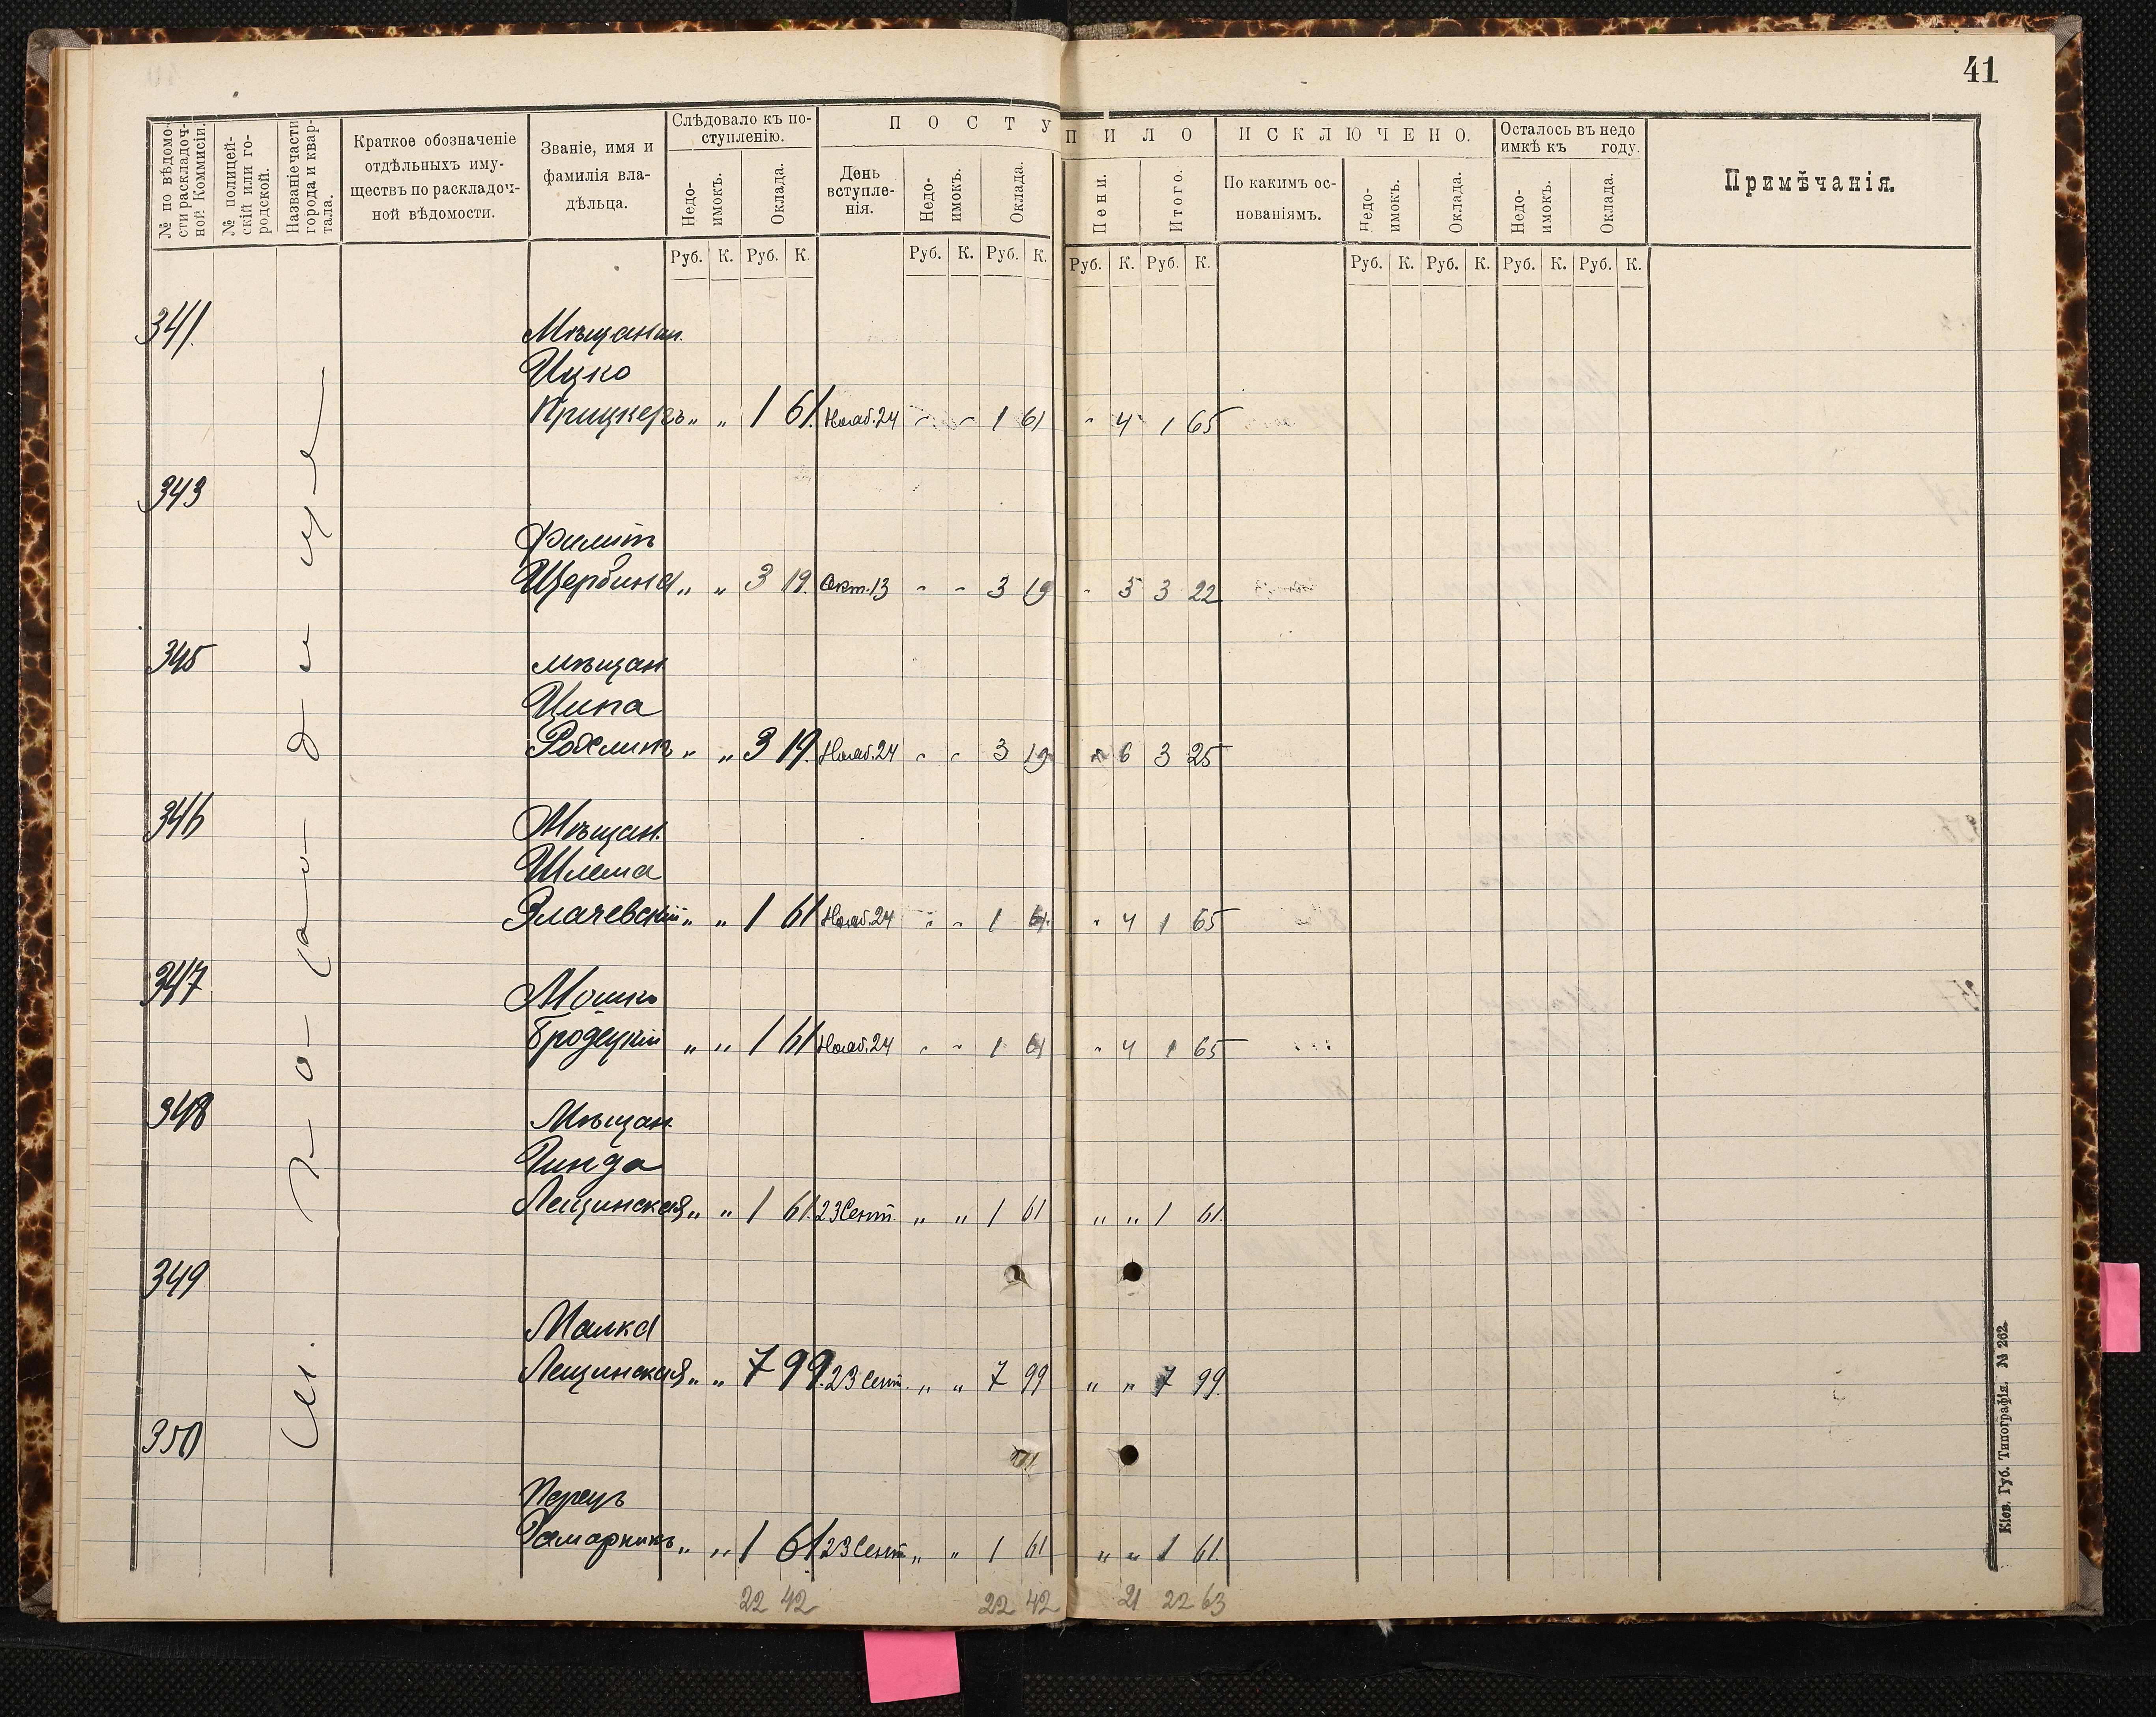 41
№ по вѣдомости раскладочной Коммисіи.
№ полицейскій или городской.
Названіе части города и квартала.
Краткое обозначеніе отдѣльныхъ имуществъ по раскладочной вѣдомости.
Званіе, имя и фамилія владѣльца.
Слѣдовало къ поступленію.
Недоимокъ.
Оклада.
ПОСТУПИЛО
День вступленія.
Недоимокъ.
Оклада.
Пени.
Итого.
ИСКЛЮЧЕНО.
По какимъ основаніямъ.
Недоимокъ.
Оклада.
Осталось въ недоимкѣ къ году.
Недоимокъ.
Оклада.
Примѣчанія.
Руб. К. Руб. К. Руб. К. Руб. К. Руб. К. Руб. К. Руб. К. Руб. К. Руб. К. Руб. К.
341.
Мѣщанин.
Ицко
Прицкеръ „ „ 1 61. Нояб. 24 - - 1 61 - 4 1 65
343
Филипъ
Щербина „ „ 3 19. Окт. 13 - - 3 19 - 3 3 22
345
мѣщан.
Ципа
„ „ 3 19. Нояб. 24 - - 3 19 6 3 25
346
Мѣщан.
Шлема
Злачевскій „ „ 1 61 Нояб. 24 - - 1 61. - 4 1 65
347
Мошко
Бродецкій „ „ 1 61 Нояб. 24 - - 1 61 - 4 1 65
348
Мѣщан.
Лещинская „ „ 1 61. 23 Сент. „ „ 1 61 „ „ 1 61.
349
Малка
Лещинская „ „ 7 99. 23 Сент. „ „ 7 99 „ „ 7 99.
350
Перецъ
„ „ 1 61 23 Сент. „ „ 1 61 „ „ 1 61.
22 42 22 42 21 22 63
Кіев. Губ. Типографія. № 262.